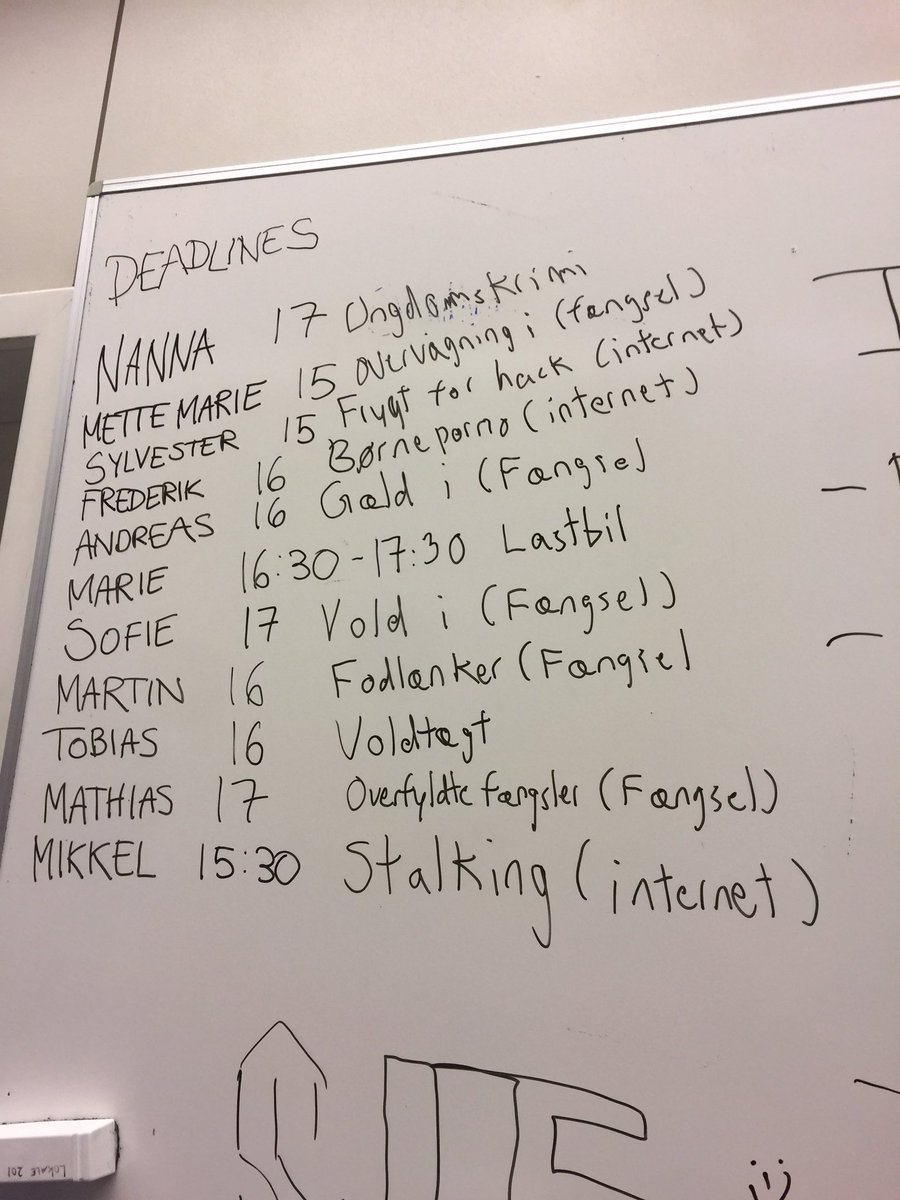 DEADLINES
NANNA 17 Ungdomskrimi
METTE MARIE 15 overvågning i (fængsel)
SYLVESTER 15 Frygt for hack (internet)
FREDERIK 16 Børneporno (internet)
ANDREAS 16 Gæld i (Fængsel
MARIE 16:30-17:30 Lastbil
SOFIE 17 Vold i (Fængsel)
MARTIN 16 Fodlænker (Fængsel
TOBIAS 16 Voldtægt
MATHIAS 17 Overfyldte fængsler (Fængsel)
MIKKEL 15:30 Stalking (internet)
LOKALE 201